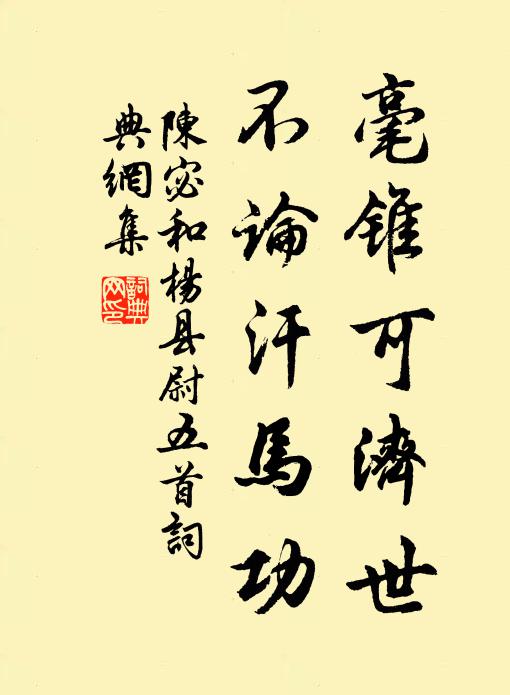 毫錐可濟世
不論汗馬功
陳宓和楊县尉五首詞
典網集
詞典
网印